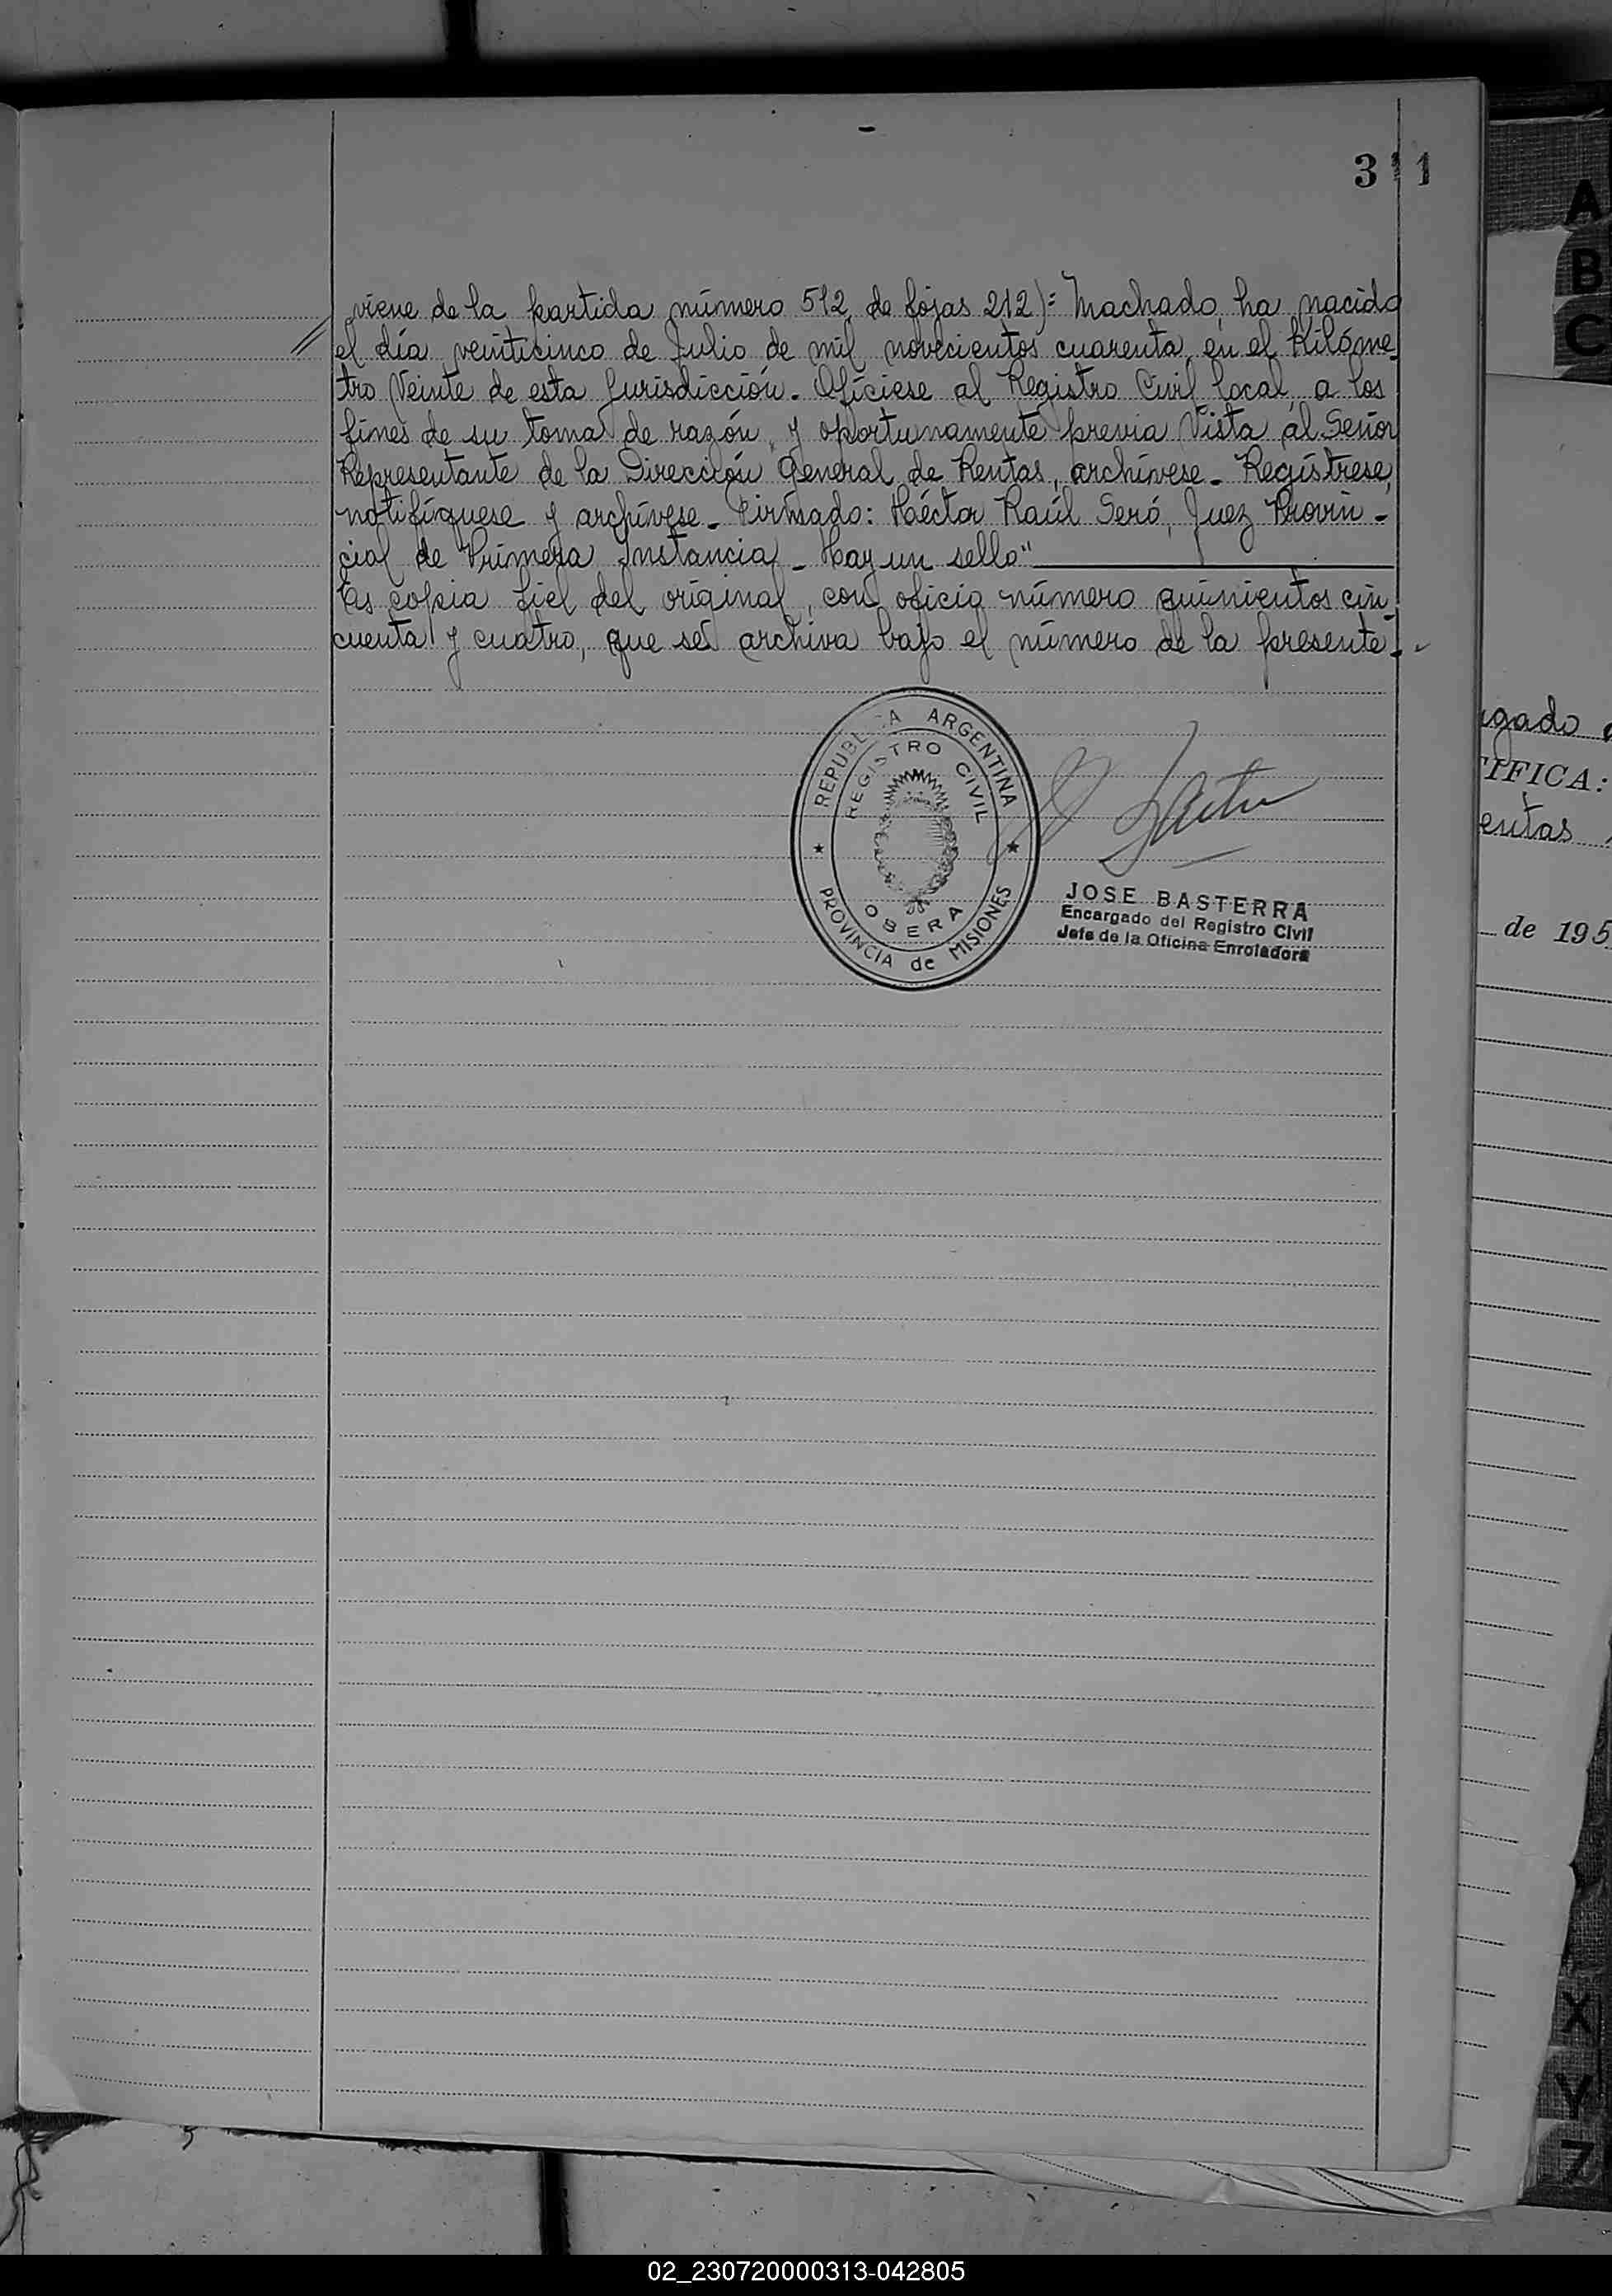 311
viene de la partida número 512, de fojas 212): Machado, ha nacido
// el día veinticinco de Julio de mil novecientos cuarenta, en el Kilóme
tro Veinte de esta Jurisdicción. Ofíciese al Registro Civil local, a los
fines de su toma de razón, y oportunamente previa Vista al Señor
Representante de la Dirección General de Rentas, archívese. Regístrese,
notifíquese y archívese. Firmado: Héctor Raúl Seró, Juez Provin-
cial de Primera Instancia. Hay un sello"
Es copia fiel del original, con oficio número quinientos cin
cuenta y cuatro, que se archiva bajo el número de la presente.-
REPUBLICA ARGENTINA
REGISTRO CIVIL
OBERA
PROVINCIA de MISIONES
JOSE BASTERRA
Encargado del Registro Civil
Jefe de la Oficina Enroladora
A
B
C
gado
IFICA:
entas
de 195
X
Y
Z
02_230720000313-042805